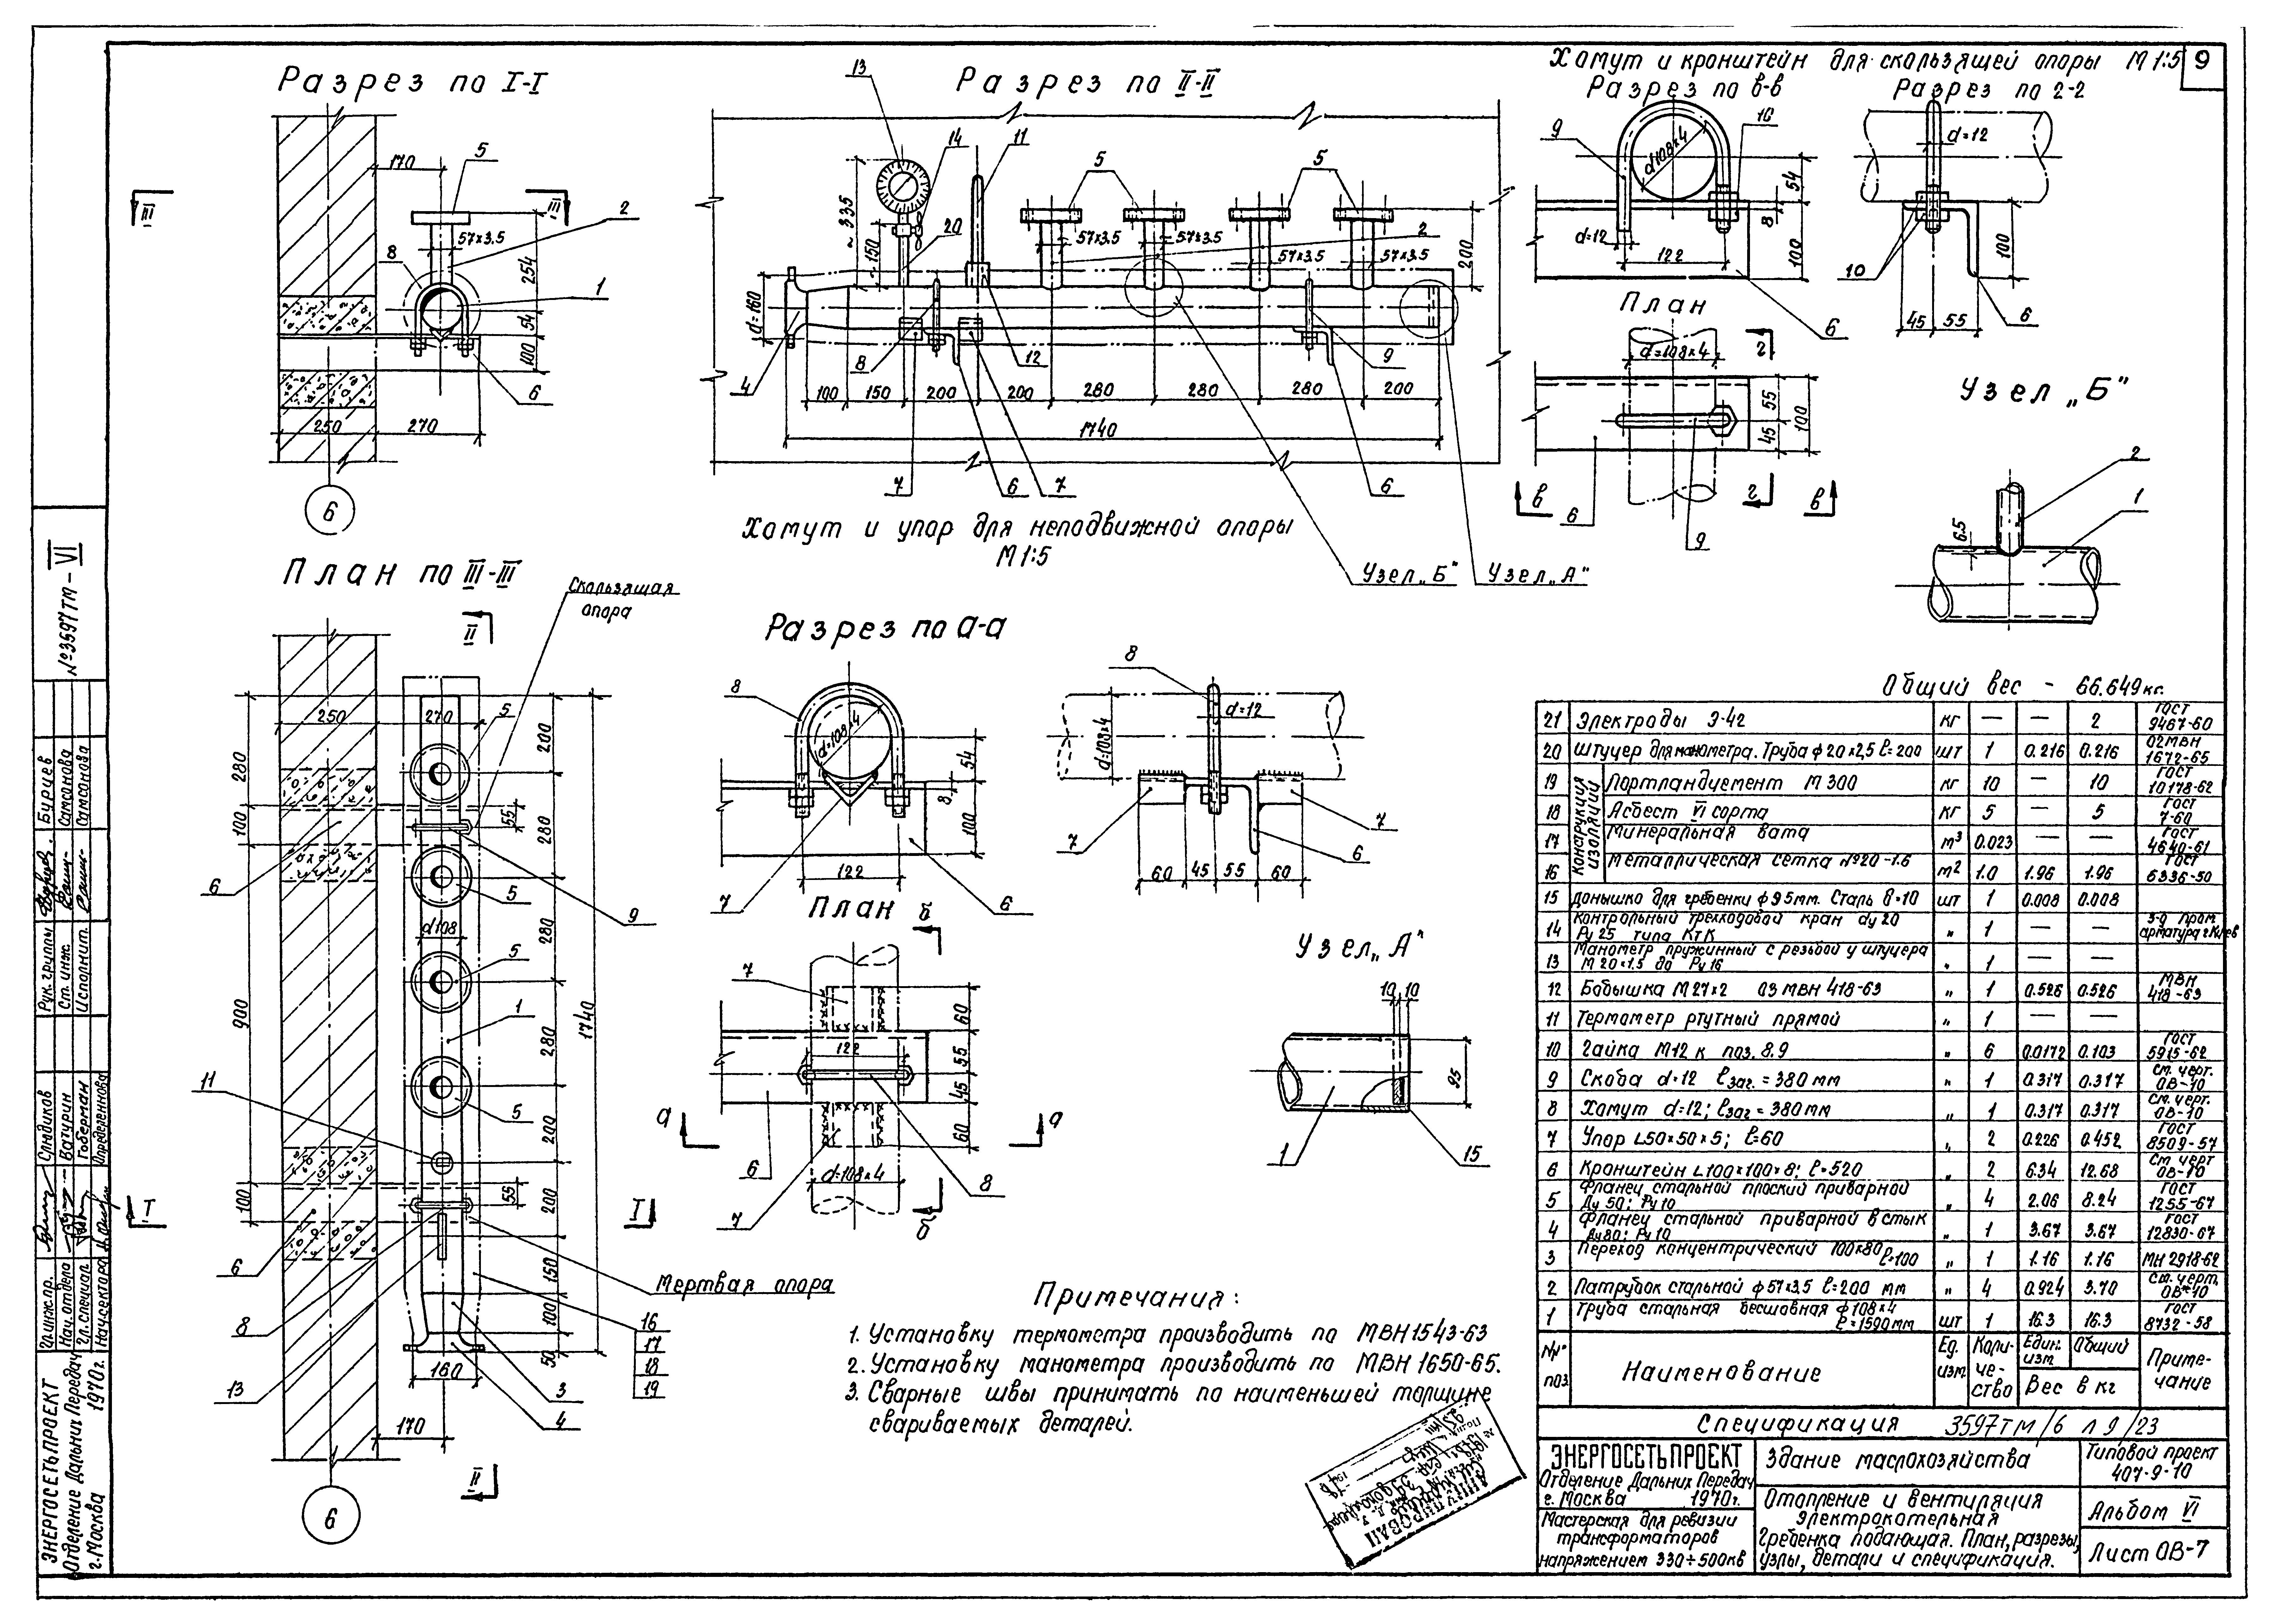 9
Разрез по I-I
170
5
III
III
2
57×3.5
8
254
1
54
100
6
250
270
6
Разрез по II-II
13
14
11
5
5
~335
~150
20
57×3.5
57×3.5
2
57×3.5
57×3.5
200
d=160
4
8
12
9
100
150
200
200
280
280
280
200
1740
7
6
7
6
Узел „Б"
Узел „А"
Хомут и кронштейн для скользящей опоры М 1:5
Разрез по в-в
Разрез по 2-2
9
10
d=12
d108×4
54
8
100
d=12
122
10
100
45
55
6
6
План
d=108×4
г
55
45
100
6
г
9
в
в
Узел „Б"
2
1
6.5
Хомут и упор для неподвижной опоры
М 1:5
План по III-III
Скользящая
опора
II
250
270
5
280
100
900
100
200
280
280
280
200
200
150
100
50
1740
55
55
6
5
9
d108
5
1
11
5
I
I
6
Мертвая опора
8
16
17
18
19
13
160
3
4
170
II
6
Разрез по а-а
8
d=108×4
54
8
100
122
7
6
8
d=12
d=108×4
7
7
6
60
45
55
60
План
б
7
122
60
55
45
60
а
а
6
8
d=108×4
7
б
Узел „А"
10
10
95
1
15
Примечания:
1. Установку термометра производить по МВН 1543-63
2. Установку манометра производить по МВН 1650-65.
3. Сварные швы принимать по наименьшей толщине
свариваемых деталей.
АННУЛИРОВАН
Общий вес - 66.649 кг.
21 Электроды Э-42 кг — — 2 ГОСТ 9467-60
20 Штуцер для манометра. Труба ф20×2,5 ℓ=200 шт 1 0.216 0.216 02МВН 1672-65
Конструкция изоляции
19 Портландцемент М 300 кг 10 — 10 ГОСТ 10178-62
18 Асбест VI сорта кг 5 — 5 ГОСТ 7-60
17 Минеральная вата м³ 0.023 — — ГОСТ 4640-61
16 Металлическая сетка №20-1.6 м² 1.0 1.96 1.96 ГОСТ 6336-50
15 Донышко для гребенки ф95мм. Сталь δ=10 шт 1 0.008 0.008
14 Контрольный трехходовой кран dу20 Ру 25 типа КТК „ 1 — — з-д пром. арматура г.Киев
13 Манометр пружинный с резьбой у штуцера М 20×1.5 до Ру 16 „ 1 — —
12 Бобышка М27×2 03 МВН 418-63 „ 1 0.526 0.526 МВН 418-63
11 Термометр ртутный прямой „ 1 — —
10 Гайка М12 к поз. 8.9 „ 6 0.0172 0.103 ГОСТ 5915-62
9 Скоба d=12 ℓзаг. = 380 мм „ 1 0.317 0.317 См. черт. ОВ-10
8 Хомут d=12; ℓзаг = 380 мм „ 1 0.317 0.317 См. черт. ОВ-10
7 Упор L50×50×5; ℓ=60 „ 2 0.226 0.452 ГОСТ 8509-57
6 Кронштейн L100×100×8; ℓ=520 „ 2 6.34 12.68 См. черт ОВ-10
5 Фланец стальной плоский приварной Ду 50; Ру 10 „ 4 2.06 8.24 ГОСТ 1255-67
4 Фланец стальной приварной в стык Ду80; Ру 10 „ 1 3.67 3.67 ГОСТ 12830-67
3 Переход концентрический 100×80 ℓ=100 „ 1 1.16 1.16 МН 2918-62
2 Патрубок стальной ф57×3.5 ℓ=200 мм „ 4 0.924 3.70 См. черт. ОВ-10
1 Труба стальная бесшовная ф108×4 ℓ=1590 мм шт 1 16.3 16.3 ГОСТ 8732-58
№№ поз. Наименование Ед. изм Количество Един. изм Общий Вес в кг Примечание
Спецификация 3597ТМ/6 л 9/23
ЭНЕРГОСЕТЬПРОЕКТ
Отделение Дальних Передач
г. Москва 1970г.
Здание маслохозяйства
Типовой проект
407-9-10
Мастерская для ревизии
трансформаторов
напряжением 330÷500кв
Отопление и вентиляция
Электрокотельная
Гребенка подающая. План, разрезы,
узлы, детали и спецификация.
Альбом VI
Лист ОВ-7
№3597ТМ-VI
Рук. группы
Бурцев
Ст. инж.
Самсонова
Исполнит.
Самсонова
Гл. инж. пр.
Нач. отдела
Ватурин
Гл. специал.
Гоберман
Нач. сектора
ЭНЕРГОСЕТЬПРОЕКТ
Отделение Дальних Передач
г. Москва 1970 г.